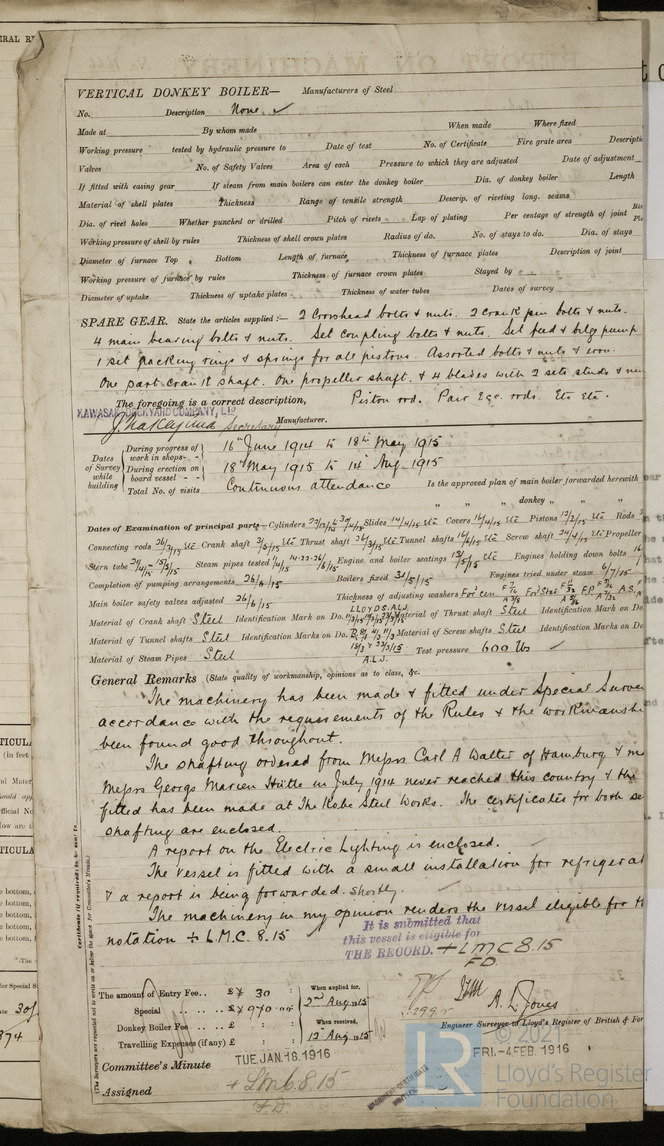 VERTICAL DONKEY BOILER— Manufacturers of Steel
No. Description None ✓
Made at By whom made When made Where fixed
Working pressure tested by hydraulic pressure to Date of test No. of Certificate Fire grate area Descripti
Valves No. of Safety Valves Area of each Pressure to which they are adjusted Date of adjustment
If fitted with easing gear If steam from main boilers can enter the donkey boiler Dia. of donkey boiler Length
Material of shell plates Thickness Range of tensile strength Descrip. of riveting long. seams
Dia. of rivet holes Whether punched or drilled Pitch of rivets Lap of plating Per centage of strength of joint
Working pressure of shell by rules Thickness of shell crown plates Radius of do. No. of stays to do. Dia. of stays
Diameter of furnace Top Bottom Length of furnace Thickness of furnace plates Description of joint
Working pressure of furnace by rules Thickness of furnace crown plates Stayed by
Diameter of uptake Thickness of uptake plates Thickness of water tubes Dates of survey
SPARE GEAR. State the articles supplied:— 2 Crosshead bolts & nuts. 2 crank pin bolts & nuts.
4 main bearing bolts & nuts. Set coupling bolts & nuts. Set feed & bilge pump
1 set packing rings & springs for all pistons. Assorted bolts & nuts & iron.
One part crank shaft. One propeller shaft. & 4 blades with 2 sets studs & nu
The foregoing is a correct description, Piston rod. Pair Ecc. rods. Etc Etc.
KAWASAKI DOCKYARD COMPANY, LTD
Secretary Manufacturer.
Dates of Survey while building
During progress of work in shops - - 16th June 1914 to 18th May 1915
During erection on board vessel - - 18th May 1915 to 14th Aug. 1915
Total No. of visits Continuous attendance Is the approved plan of main boiler forwarded herewith
" " " donkey " " "
Dates of Examination of principal parts—Cylinders Slides 14/4/15 Etc Covers 16/4/15 Etc Pistons 12/3/15 Etc Rods
Connecting rods 26/3/15 Etc Crank shaft 3/5/15 Etc Thrust shaft 26/3/15 Etc Tunnel shafts 14/6/15 Etc Screw shaft 24/4/15 Etc Propeller
Stern tube Steam pipes tested Engine and boiler seatings 13/5/15 Etc Engines holding down bolts
Completion of pumping arrangements 26/8/15 Boilers fixed 31/5/15 Engines tried under steam 6/7/15
Main boiler safety valves adjusted 26/6/15 Thickness of adjusting washers
Material of Crank shaft Steel Identification Mark on Do. LLOYDS. ALJ Material of Thrust shaft Steel Identification Mark on Do
Material of Tunnel shafts Steel Identification Marks on Do. Material of Screw shafts Steel Identification Marks on Do
Material of Steam Pipes Steel A.L.J. Test pressure 600 lbs ✓
General Remarks (State quality of workmanship, opinions as to class, &c.
The machinery has been made & fitted under Special Surve
accordance with the requirements of the Rules & the workmansh
been found good throughout.
The shafting ordered from Messrs Carl A Walter of Hamburg & m
Messrs Georgs Marien Hütte in July 1914 never reached this country & the
fitted has been made at The Kobe Steel Works. The certificates for both se
shafting are enclosed.
A report on the Electric Lighting is enclosed.
The vessel is fitted with a small installation for refrigerat
& a report is being forwarded shortly.
The machinery in my opinion renders the vessel eligible for th
notation + L.M.C. 8.15
It is submitted that
this vessel is eligible for
THE RECORD. + LMC 8.15
FD
The amount of Entry Fee . . £ ¥ 30 : When applied for,
Special . . . . £ ¥ 970 : 00 2nd Aug 1915
Donkey Boiler Fee . . £ : : When received,
Travelling Expenses (if any) £ : : 12 Aug 1915
A. L. Jones
Engineer Surveyor to Lloyd's Register of British & For
Committee's Minute TUE. JAN. 18. 1916 FRI.-4 FEB. 1916
Assigned + Lmc. 8.15
F.D.
Certificate (if required) to be sent to
(The Surveyors are requested not to write on or below the space for Committee's Minute.)
© 2021
LR
Lloyd's Register
Foundation